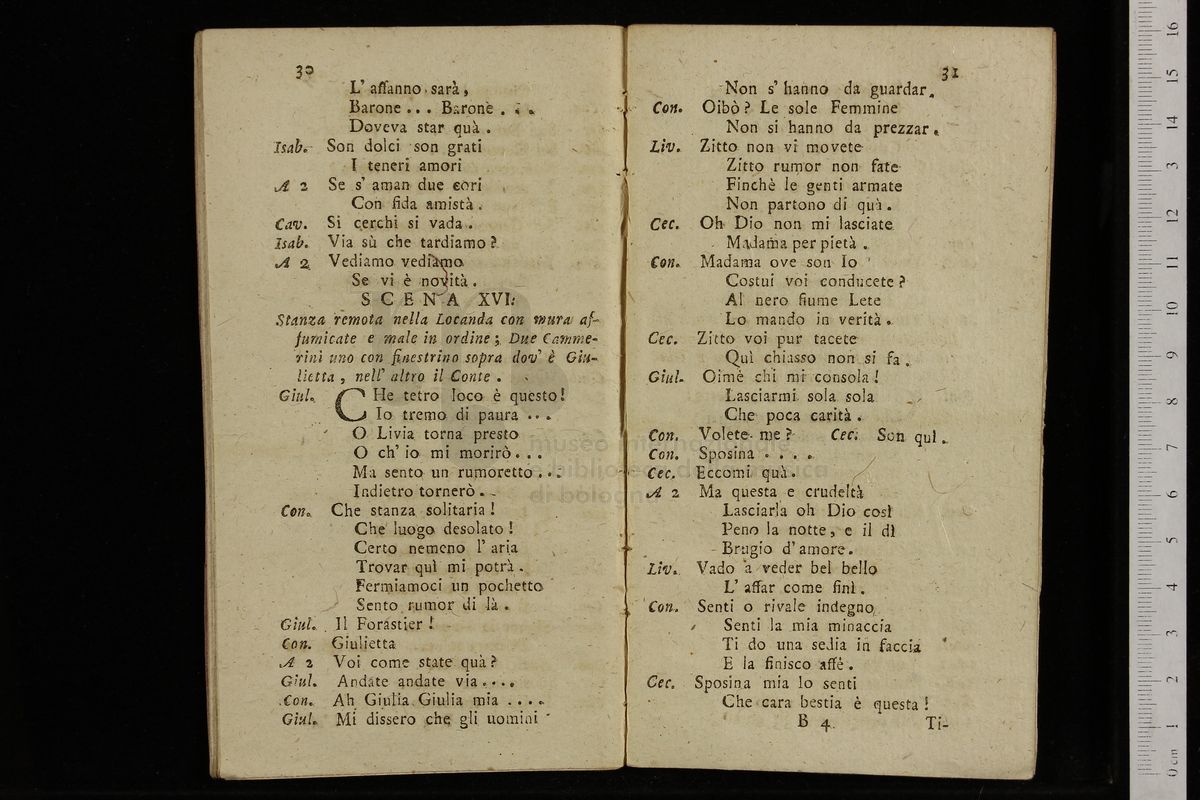 30
L' affanno sarà,
Barone... Barone...
Doveva star quà.
Isab. Son dolci son grati
I teneri amori
A 2 Se s' aman due cori
Con fida amistà.
Cav. Si cerchi si vada.
Isab. Via sù che tardiamo?
A 2 Vediamo vediamo
Se vi è novità.
SCENA XVI.
Stanza remota nella Locanda con mura af-
fumicate e male in ordine; Due Camme-
rini uno con finestrino sopra dov' è Giu-
lietta, nell' altro il Conte.
Giul. CHe tetro loco è questo!
Io tremo di paura...
O Livia torna presto
O ch' io mi morirò...
Ma sento un rumoretto...
Indietro tornerò.
Con. Che stanza solitaria!
Che luogo desolato!
Certo nemeno l' aria
Trovar quì mi potrà.
Fermiamoci un pochetto
Sento rumor di là.
Giul. Il Forastier!
Con. Giulietta
A 2 Voi come state quà?
Giul. Andate andate via....
Con. Ah Giulia Giulia mia....
Giul. Mi dissero che gli uomini
31
Non s' hanno da guardar.
Con. Oibò? Le sole Femmine
Non si hanno da prezzar.
Liv. Zitto non vi movete
Zitto rumor non fate
Finchè le genti armate
Non partono di quà.
Cec. Oh Dio non mi lasciate
Madama per pietà.
Con. Madama ove son Io
Costui voi conducete?
Al nero fiume Lete
Lo mando in verità.
Cec. Zitto voi pur tacete
Quì chiasso non si fa.
Giul. Oimè chi mi consola!
Lasciarmi sola sola
Che poca carità.
Con. Volete me? Cec. Son quì.
Con. Sposina....
Cec. Eccomi quà.
A 2 Ma questa e crudeltà
Lasciarla oh Dio così
Peno la notte, e il dì
Brugio d' amore.
Liv. Vado a veder bel bello
L' affar come finì.
Con. Senti o rivale indegno
Senti la mia minaccia
Ti do una sedia in faccia
E la finisco affè.
Cec. Sposina mia lo senti
Che cara bestia è questa!
B 4. Ti-
museo internazionale
e biblioteca della musica
di bologna
0 cm 1 2 3 4 5 6 7 8 9 10 11 12 13 14 15 16